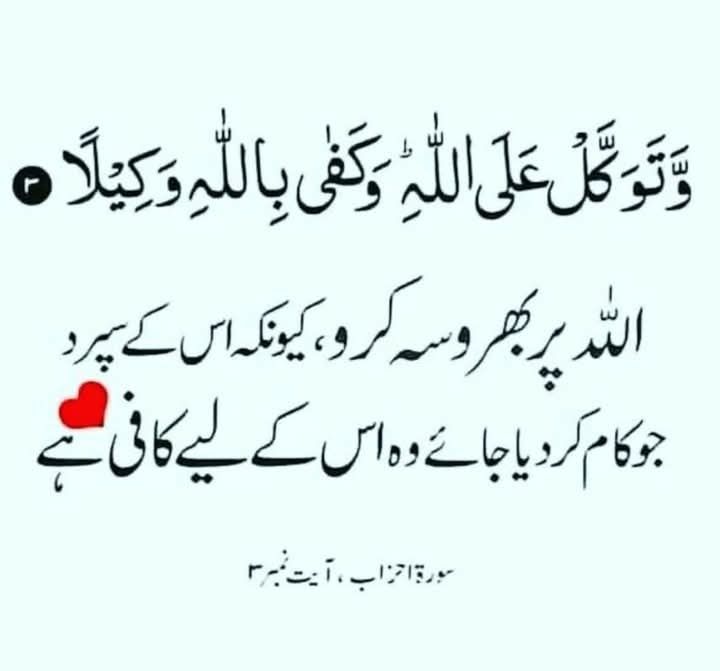 وَّتَوَكَّلْ عَلَى اللّٰهِ ؕ وَكَفٰى بِاللّٰهِ وَكِيْلًا ۳
اللہ پر بھروسہ کرو، کیونکہ اس کے سپرد
جو کام کر دیا جائے وہ اس کے لیے کافی ہے
سورۃ احزاب، آیت نمبر ۳